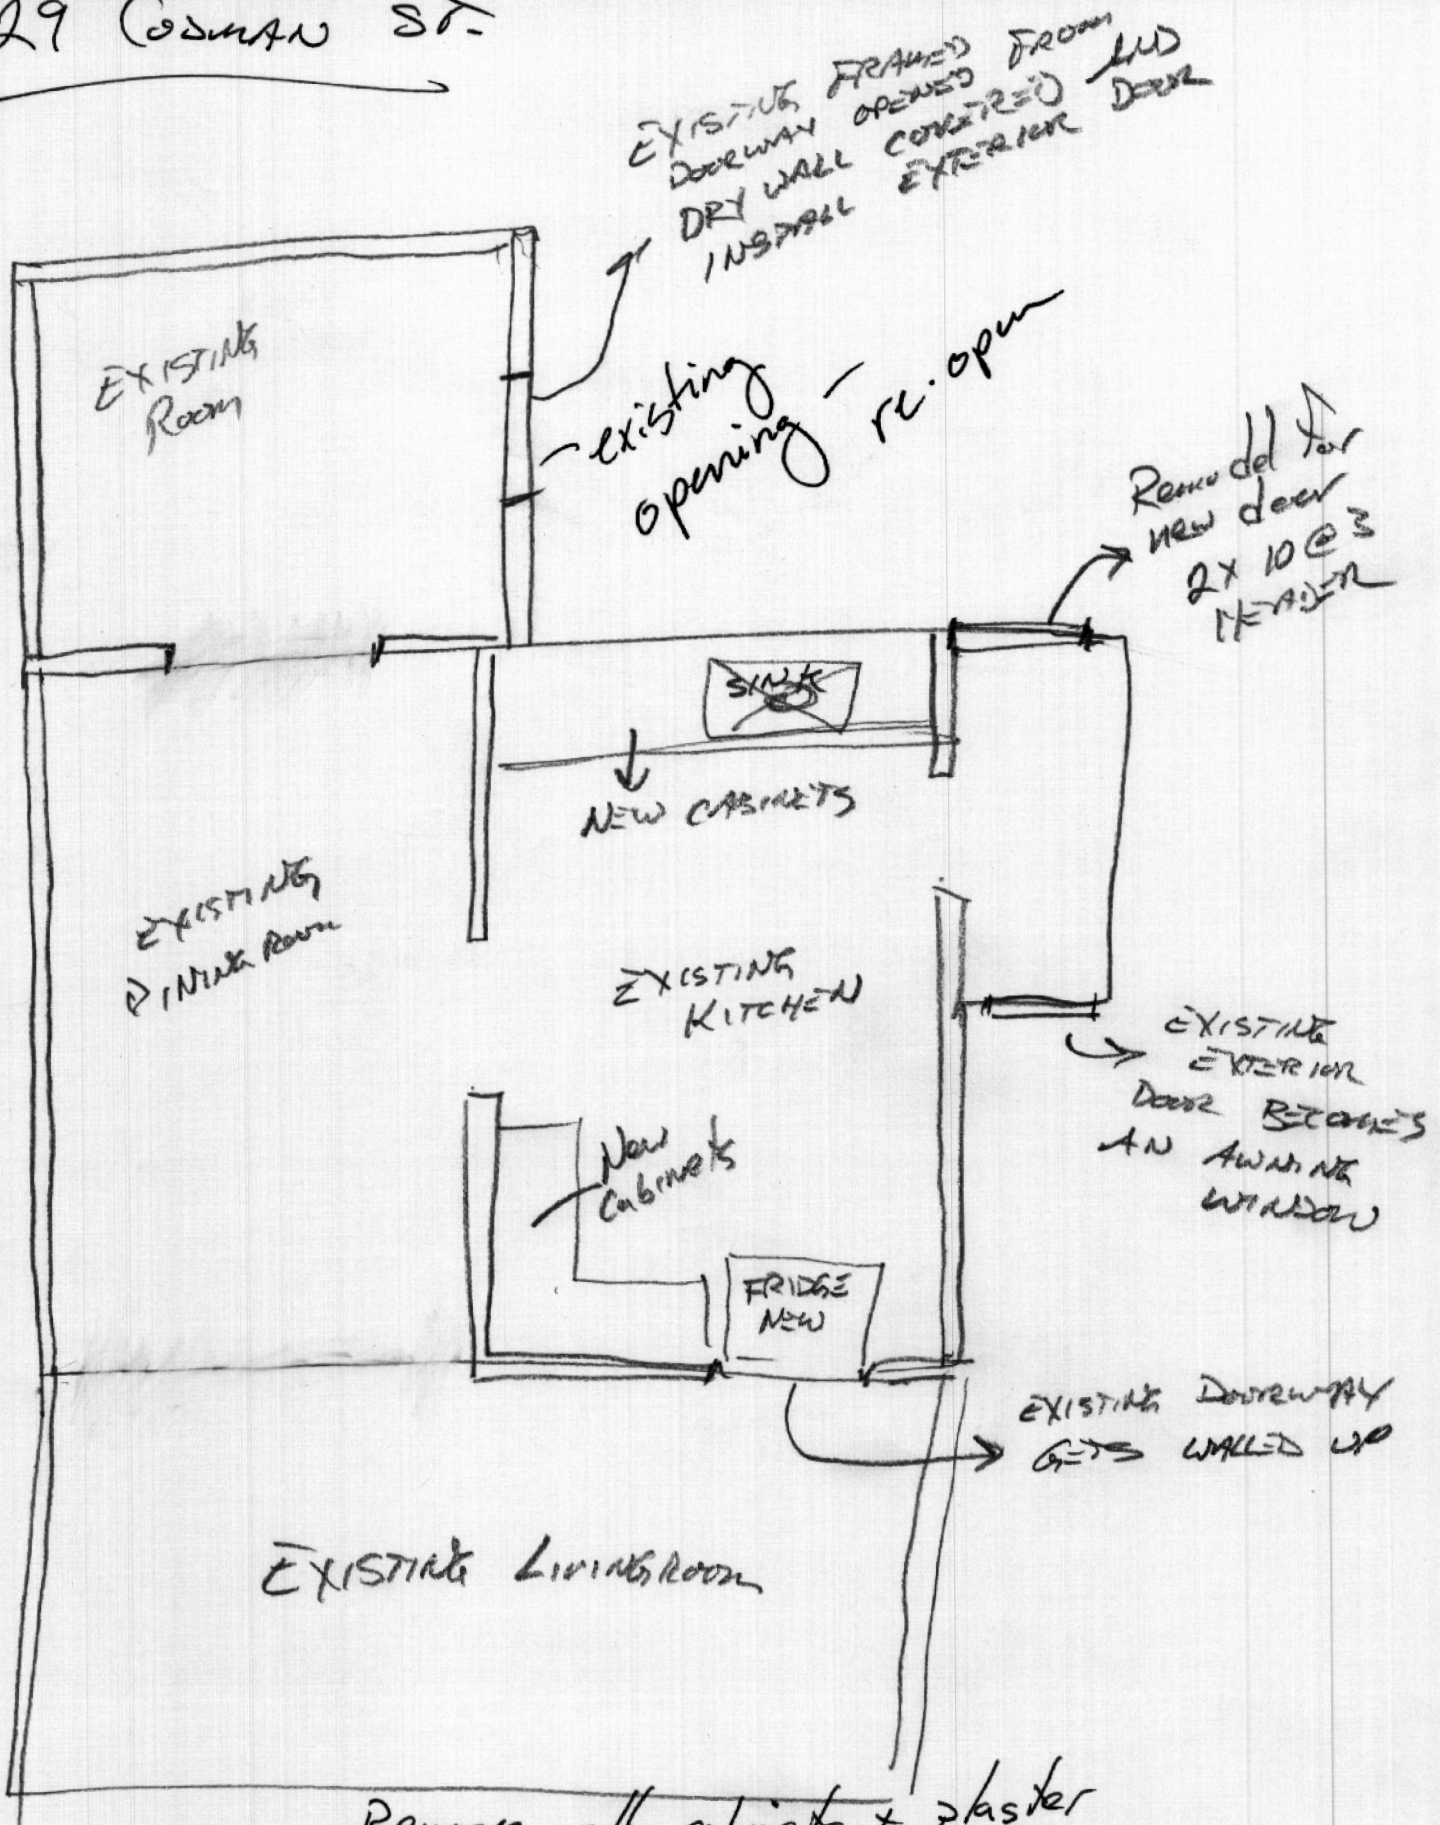 29 CODMAN ST.
EXISTING FRAMED
DOORWAY OPENED FROM
DRY WALL COVERED AND
INSTALL EXTERIOR DOOR
EXISTING
ROOM
existing
opening - re-open
Remodel for
new door
2 X 10 @ 3
HEADER
SINK
NEW CABINETS
EXISTING
DINING ROOM
EXISTING
KITCHEN
EXISTING
EXTERIOR
DOOR BECOMES
AN AWNING
WINDOW
New
Cabinets
FRIDGE
NEW
EXISTING DOORWAY
GETS WALLED UP
EXISTING LIVINGROOM
Remove all cabinets + plaster